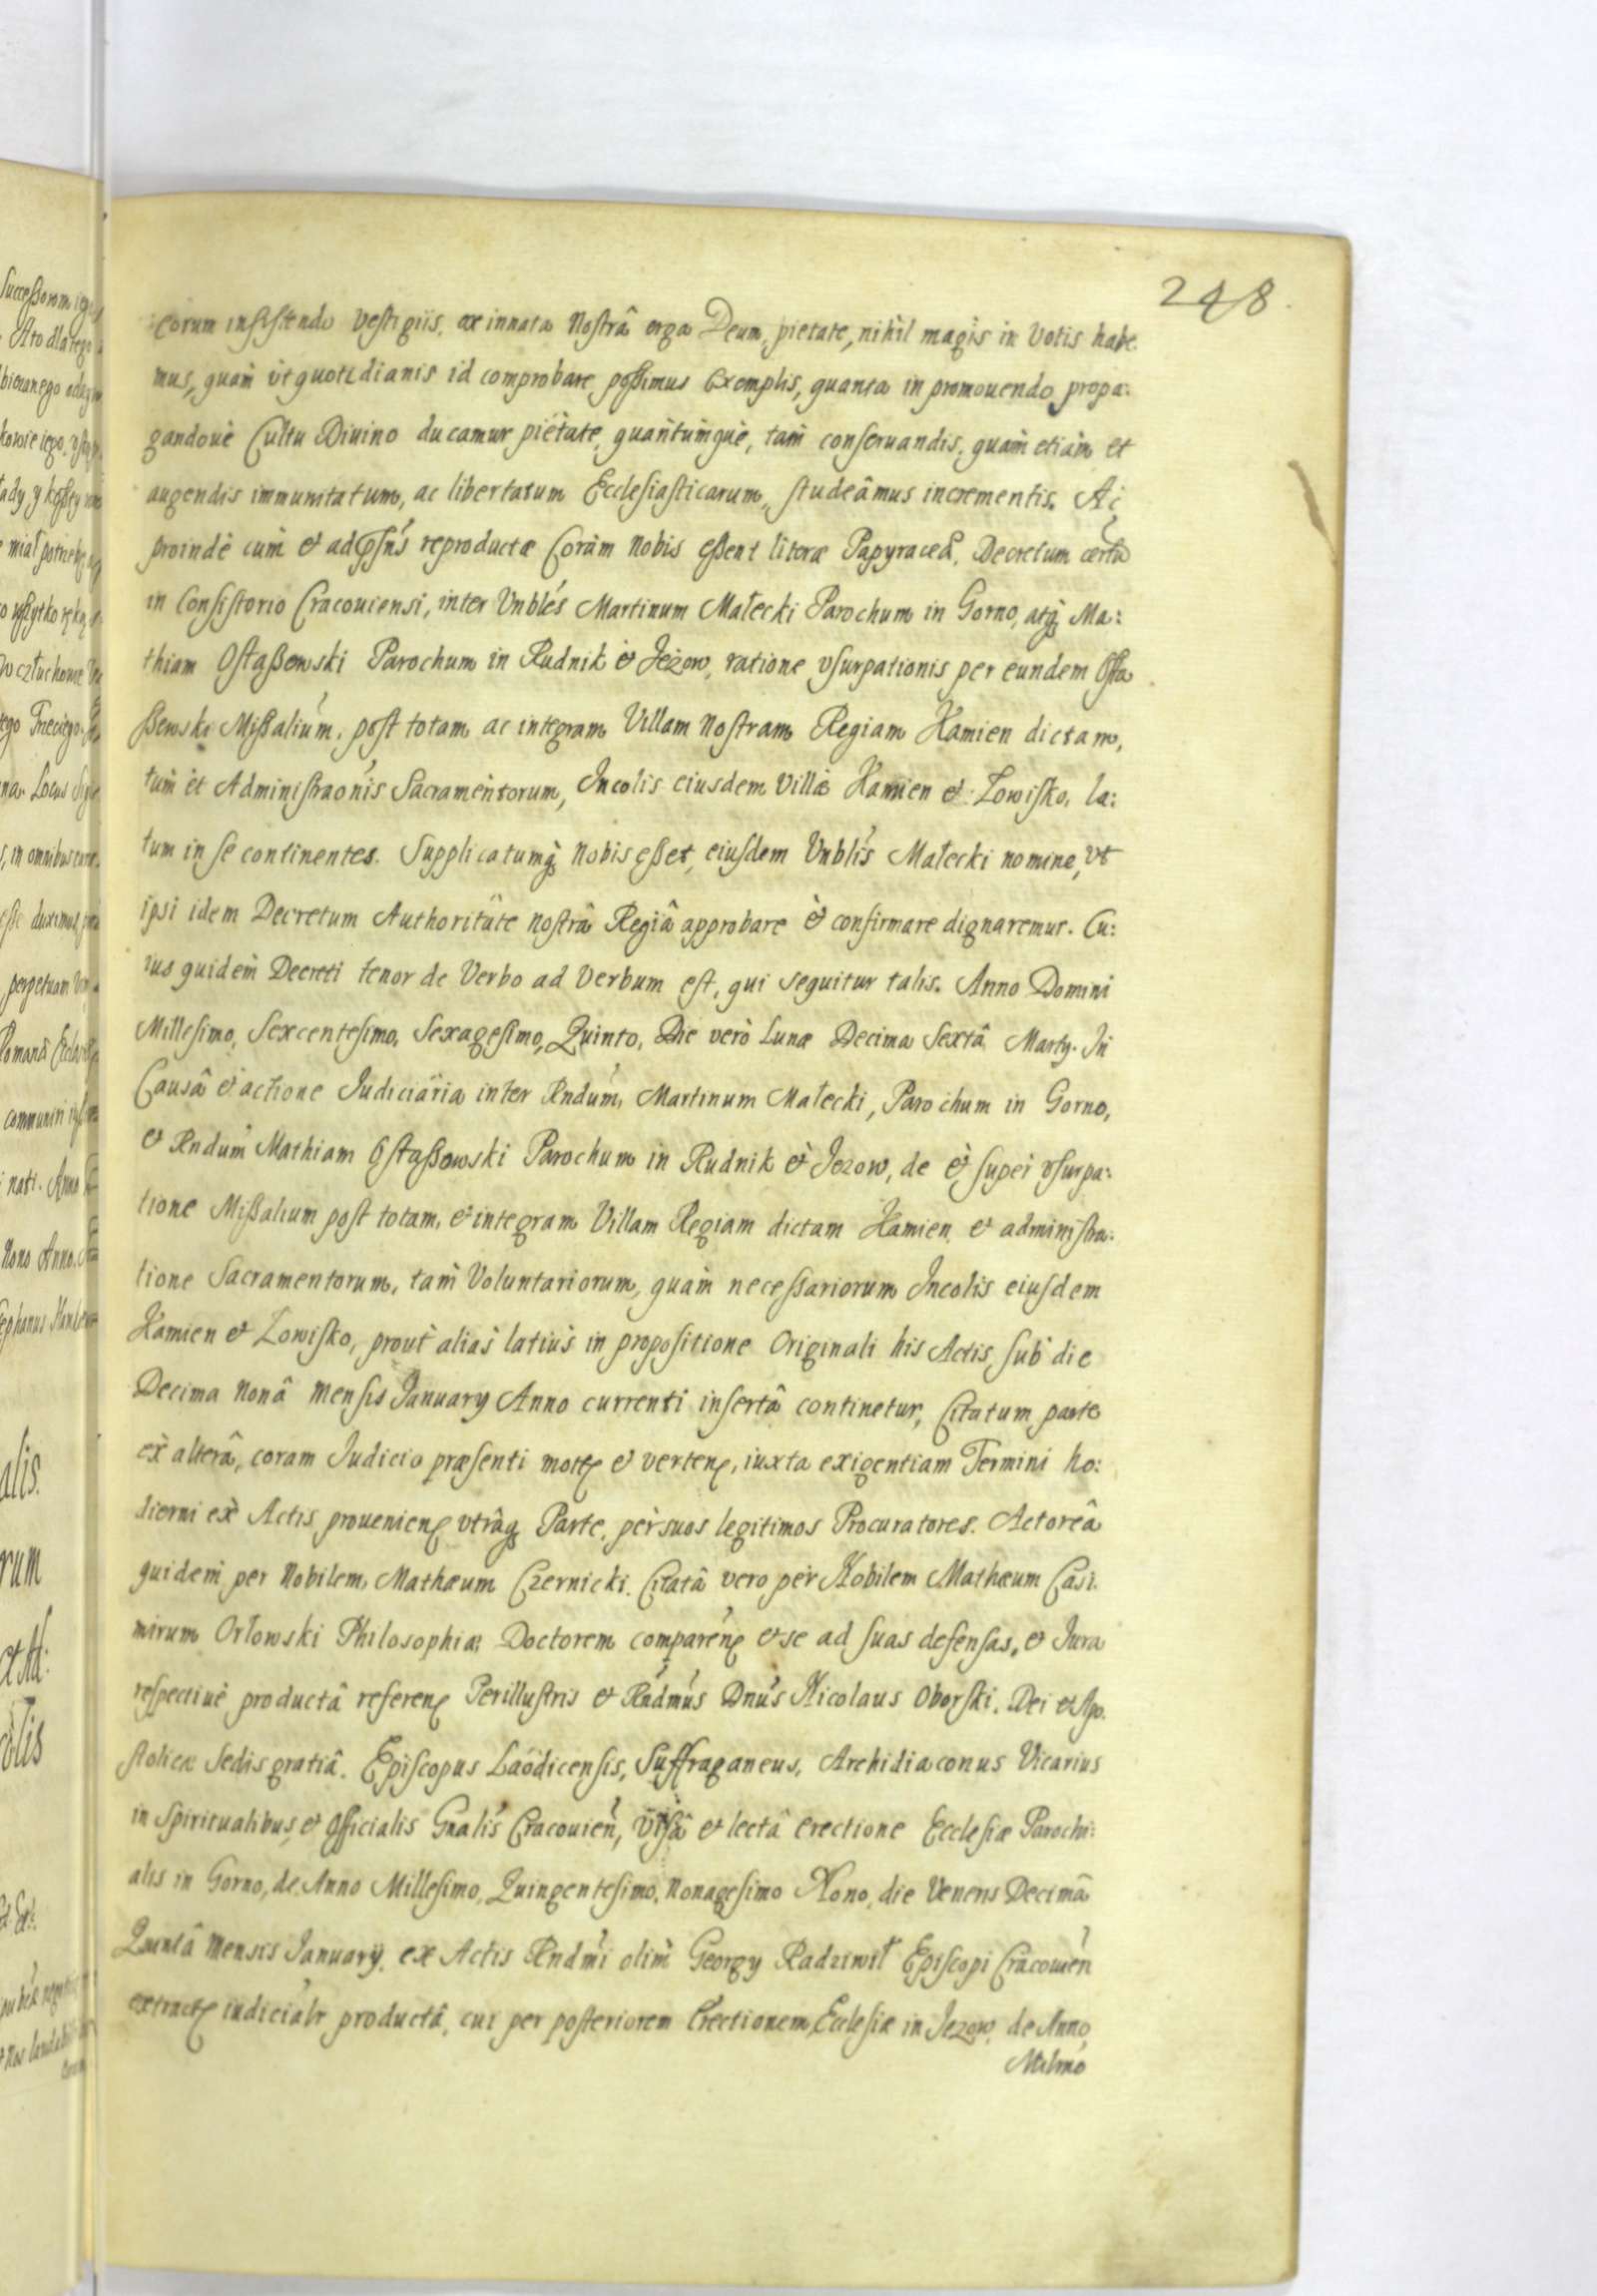 248
eorum insistendo vestigiis, ex innata Nostrâ erga Deum, pietate, nihil magis in Votis habe:
mus, quam vt quotidianis id comprobare possimus Exemplis, quanta in promouendo, propa:
gandouè Cultu Diuino ducamur pietate, quantumquè, tam conseruandis, quam etiam et
augendis immunitatum, ac libertatum Ecclesiasticarum, studeâmus incrementis. Ac
proindè cum et ad pñs reproductæ Coràm Nobis essent literæ Papyraceæ, Decretum certũ
in Consistorio Cracouiensi, inter Vnbles Martinum Małecki Parochum in Gorno, atq Ma:
thiam Ostaßewski Parochum in Rudnik et Jeżow, ratione vsurpationis per eundem Osta
ßewski Missalium, post totam, ac integram Villam Nostram Regiam Kamien dictam,
tum et Administraonis Sacramentorum, Incolis eiusdem Villæ Kamien et Łowisko, la:
tum in se continentes. Supplicatumq Nobis esset, eiusdem Vnblis Małecki nomine, vt
ipsi idem Decretum Authoritate nostrâ Regiâ approbare et confirmare dignaremur. Cu:
ius quidem Decreti tenor de Verbo ad Verbum est, qui sequitur talis. Anno Domini
Millesimo, Sexcentesimo, Sexagesimo, Quinto, Die verò Lunæ Decima Sextâ Marty. In
Causâ et actione Iudiciaria inter Rndum, Martinum Małecki, Parochum in Gorno,
et Rndum Mathiam Ostaßowski Parochum in Rudnik et Jezow, de et super vsurpa:
tione Missalium post totam, et integram Villam Regiam dictam Kamien, et administra:
tione Sacramentorum, tam Voluntariorum, quam necessariorum Incolis eiusdem
Kamien et Łowisko, prout alias latius in propositione Originali his Actis, sub die
Decima Nonâ Mensis January Anno currenti insertâ continetur, Citatum parte
ex alterâ, coram Iudicio præsenti mot. et verten., iuxta exigentiam Termini ho:
dierni ex Actis prouenien. vtrâq Parte, per suos legitimos Procuratores. Actoreâ
quidem per Nobilem, Mathæum Czernicki. Citatâ vero per Nobilem Mathæum Casi:
mirum Orłowski Philosophiæ Doctorem comparen. et se ad suas defensas, et Iura
respectiuè productâ referen. Perillustris et Rndmus Dnus Nicolaus Oborski, Dei et Apo:
stolicæ Sedis gratiâ. Episcopus Laodicensis, Suffraganeus, Archidiaconus Vicarius
in Spiritualibus, et Officialis Gnalis Cracouien, Visâ et lectâ erectione Ecclesiæ Parochi:
alis in Gorno, de Anno Millesimo, Quingentesimo, Nonagesimo Nono, die Veneris Decimâ
Quintâ Mensis January, ex Actis Rndmi olim Georgy Radziwił Episcopi Cracouien
extract. iudicialr productâ, cui per posteriorem Erectionem, Ecclesiæ in Jezow, de Anno
Mılmo